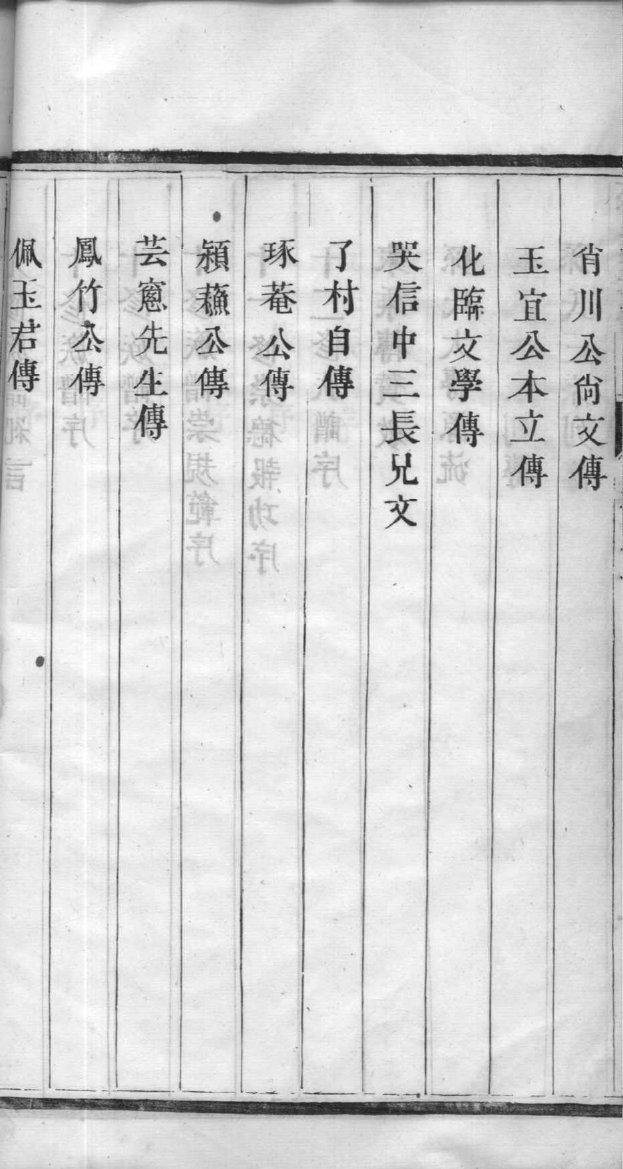 肖川公尙文傳
玉宜公本立傳
化臨文學傳
哭信中三長兄文
了村自傳
琢菴公傳
穎蘓公傳
芸窻先生傳
鳳竹公傳
佩玉君傳